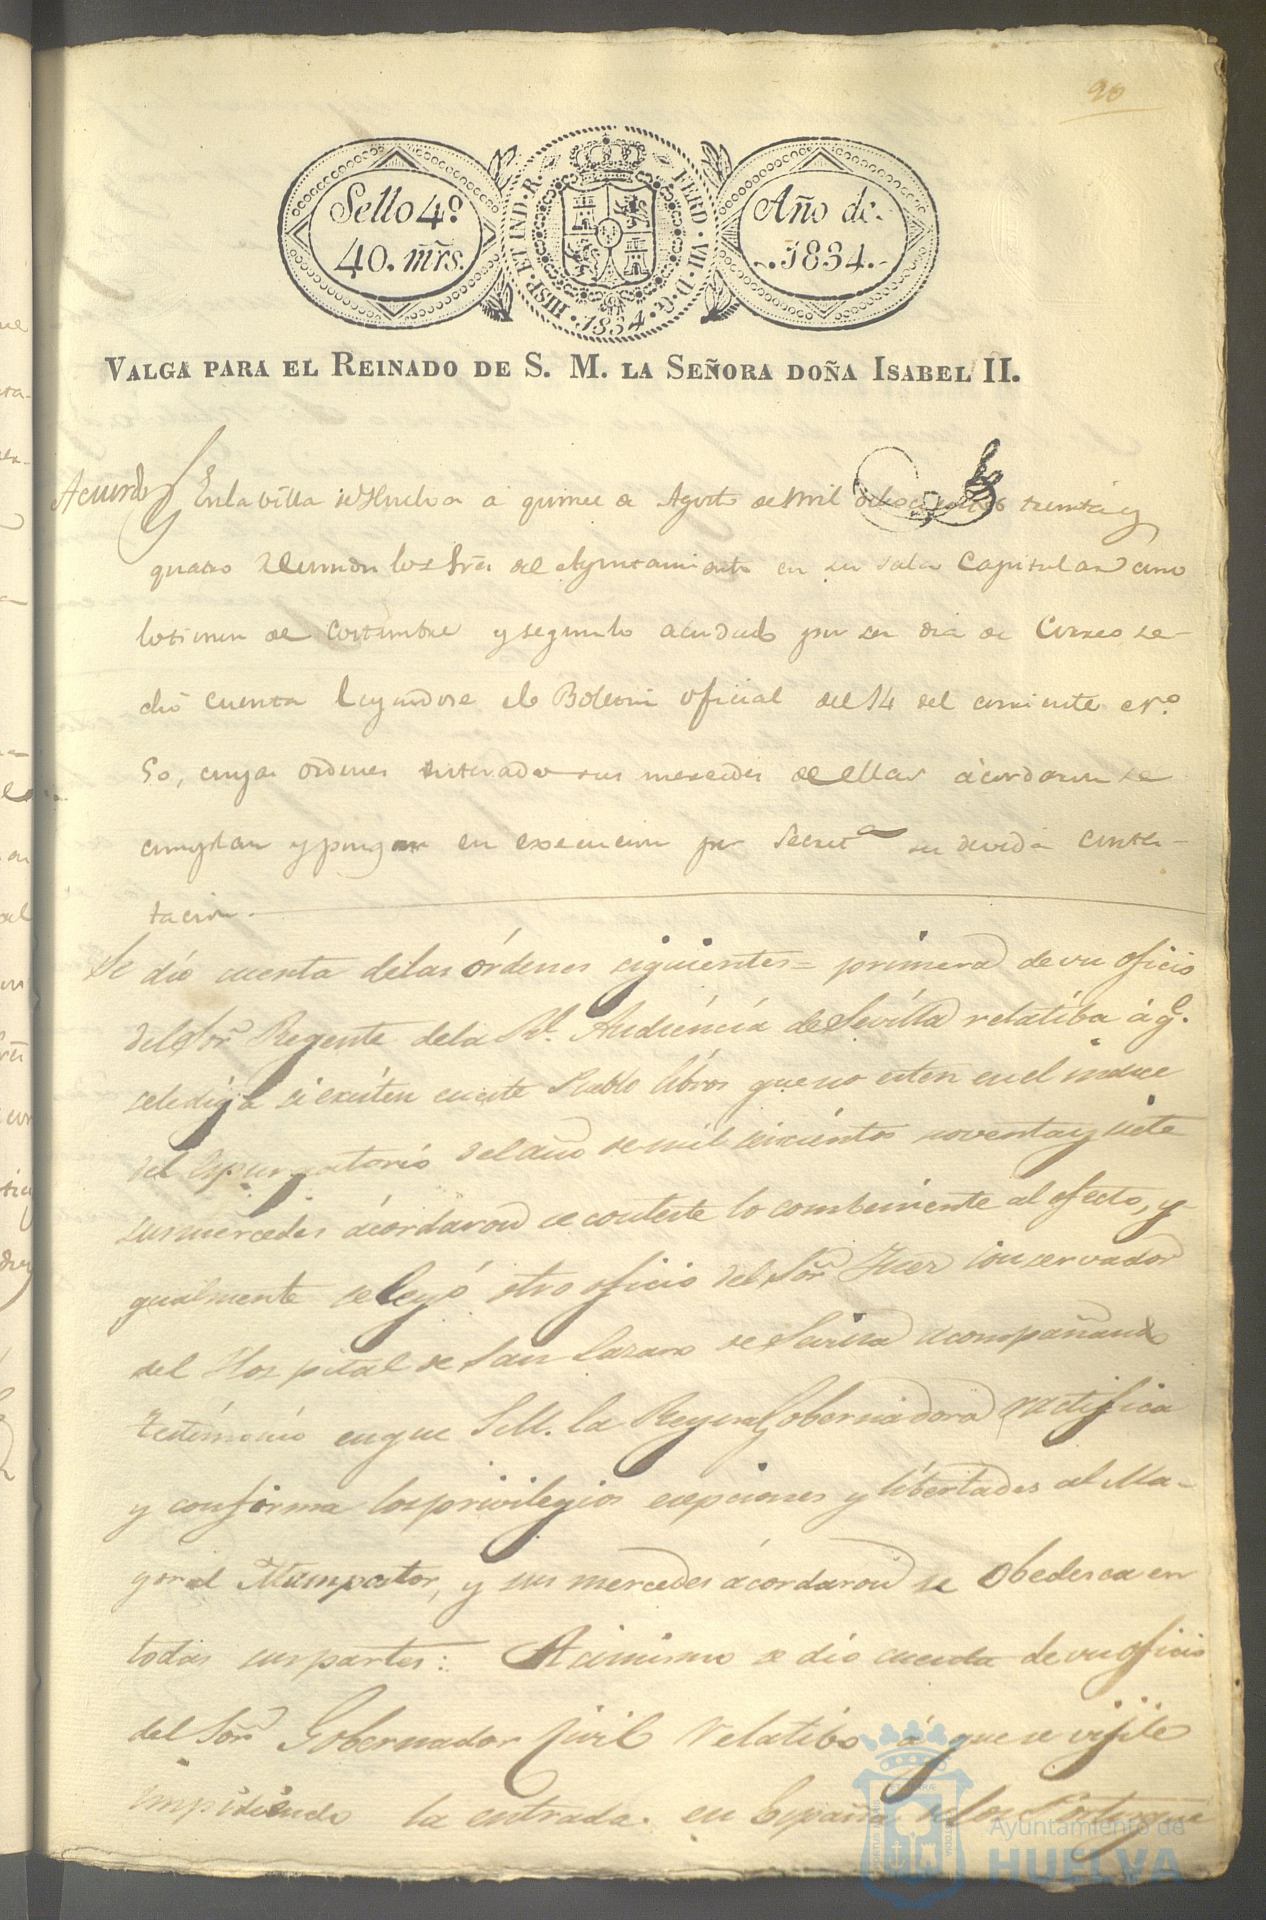 90
Sello 4º
40. mrs.
HISP. ET IND. R.
FERD. VII. D. G.
1834
Año de
1834.
VALGA PARA EL REINADO DE S. M. LA SEÑORA DOÑA ISABEL II.
Acuerdo
En la villa de Huelva a quince de Agosto de mil ochocientos treinta y
quatro reunidos los Sres del Ayuntamiento en su sala Capitular como
lo tienen de costumbre y segun lo acordado por ser dia de Correo se
dio cuenta leyendose el Boletin oficial del 14 del corriente nº
50, cuyas ordenes enterados sus mercedes de ellas acordaron se
cumplan y pongan en execucion por Secreta su devida contes-
tacion.
Se dió cuenta delas órdenes siguientes = primera de un oficio
del Sor Regente dela Rl. Audiéncia de Sevilla relatiba á q.e
sele diga si existen en este Pueblo libros que no esten en el indice
del espurgatorio del año de mil seiscientos noventa y siete
sus mercedes acordaron se conteste lo combeniente al efecto, y
gualmente se leyó otro oficio del Sor Juez conservador
del Hospital de San Lazaro de Sevilla acompañando
testimonio en que S.M. la Reyna Gobernadora ratifica
y conforma los privilegios ecepciones y libertades al Ma-
yoral Mampastor, y sus mercedes ácordaron se Obedesca en
todas sus partes: Asimismo se dio cuenta de un oficio
del Sor Gobernador Civil Relatibo á que se vijile
impidiendo la entrada en España delos Portugue
Ayuntamiento de
HUELVA